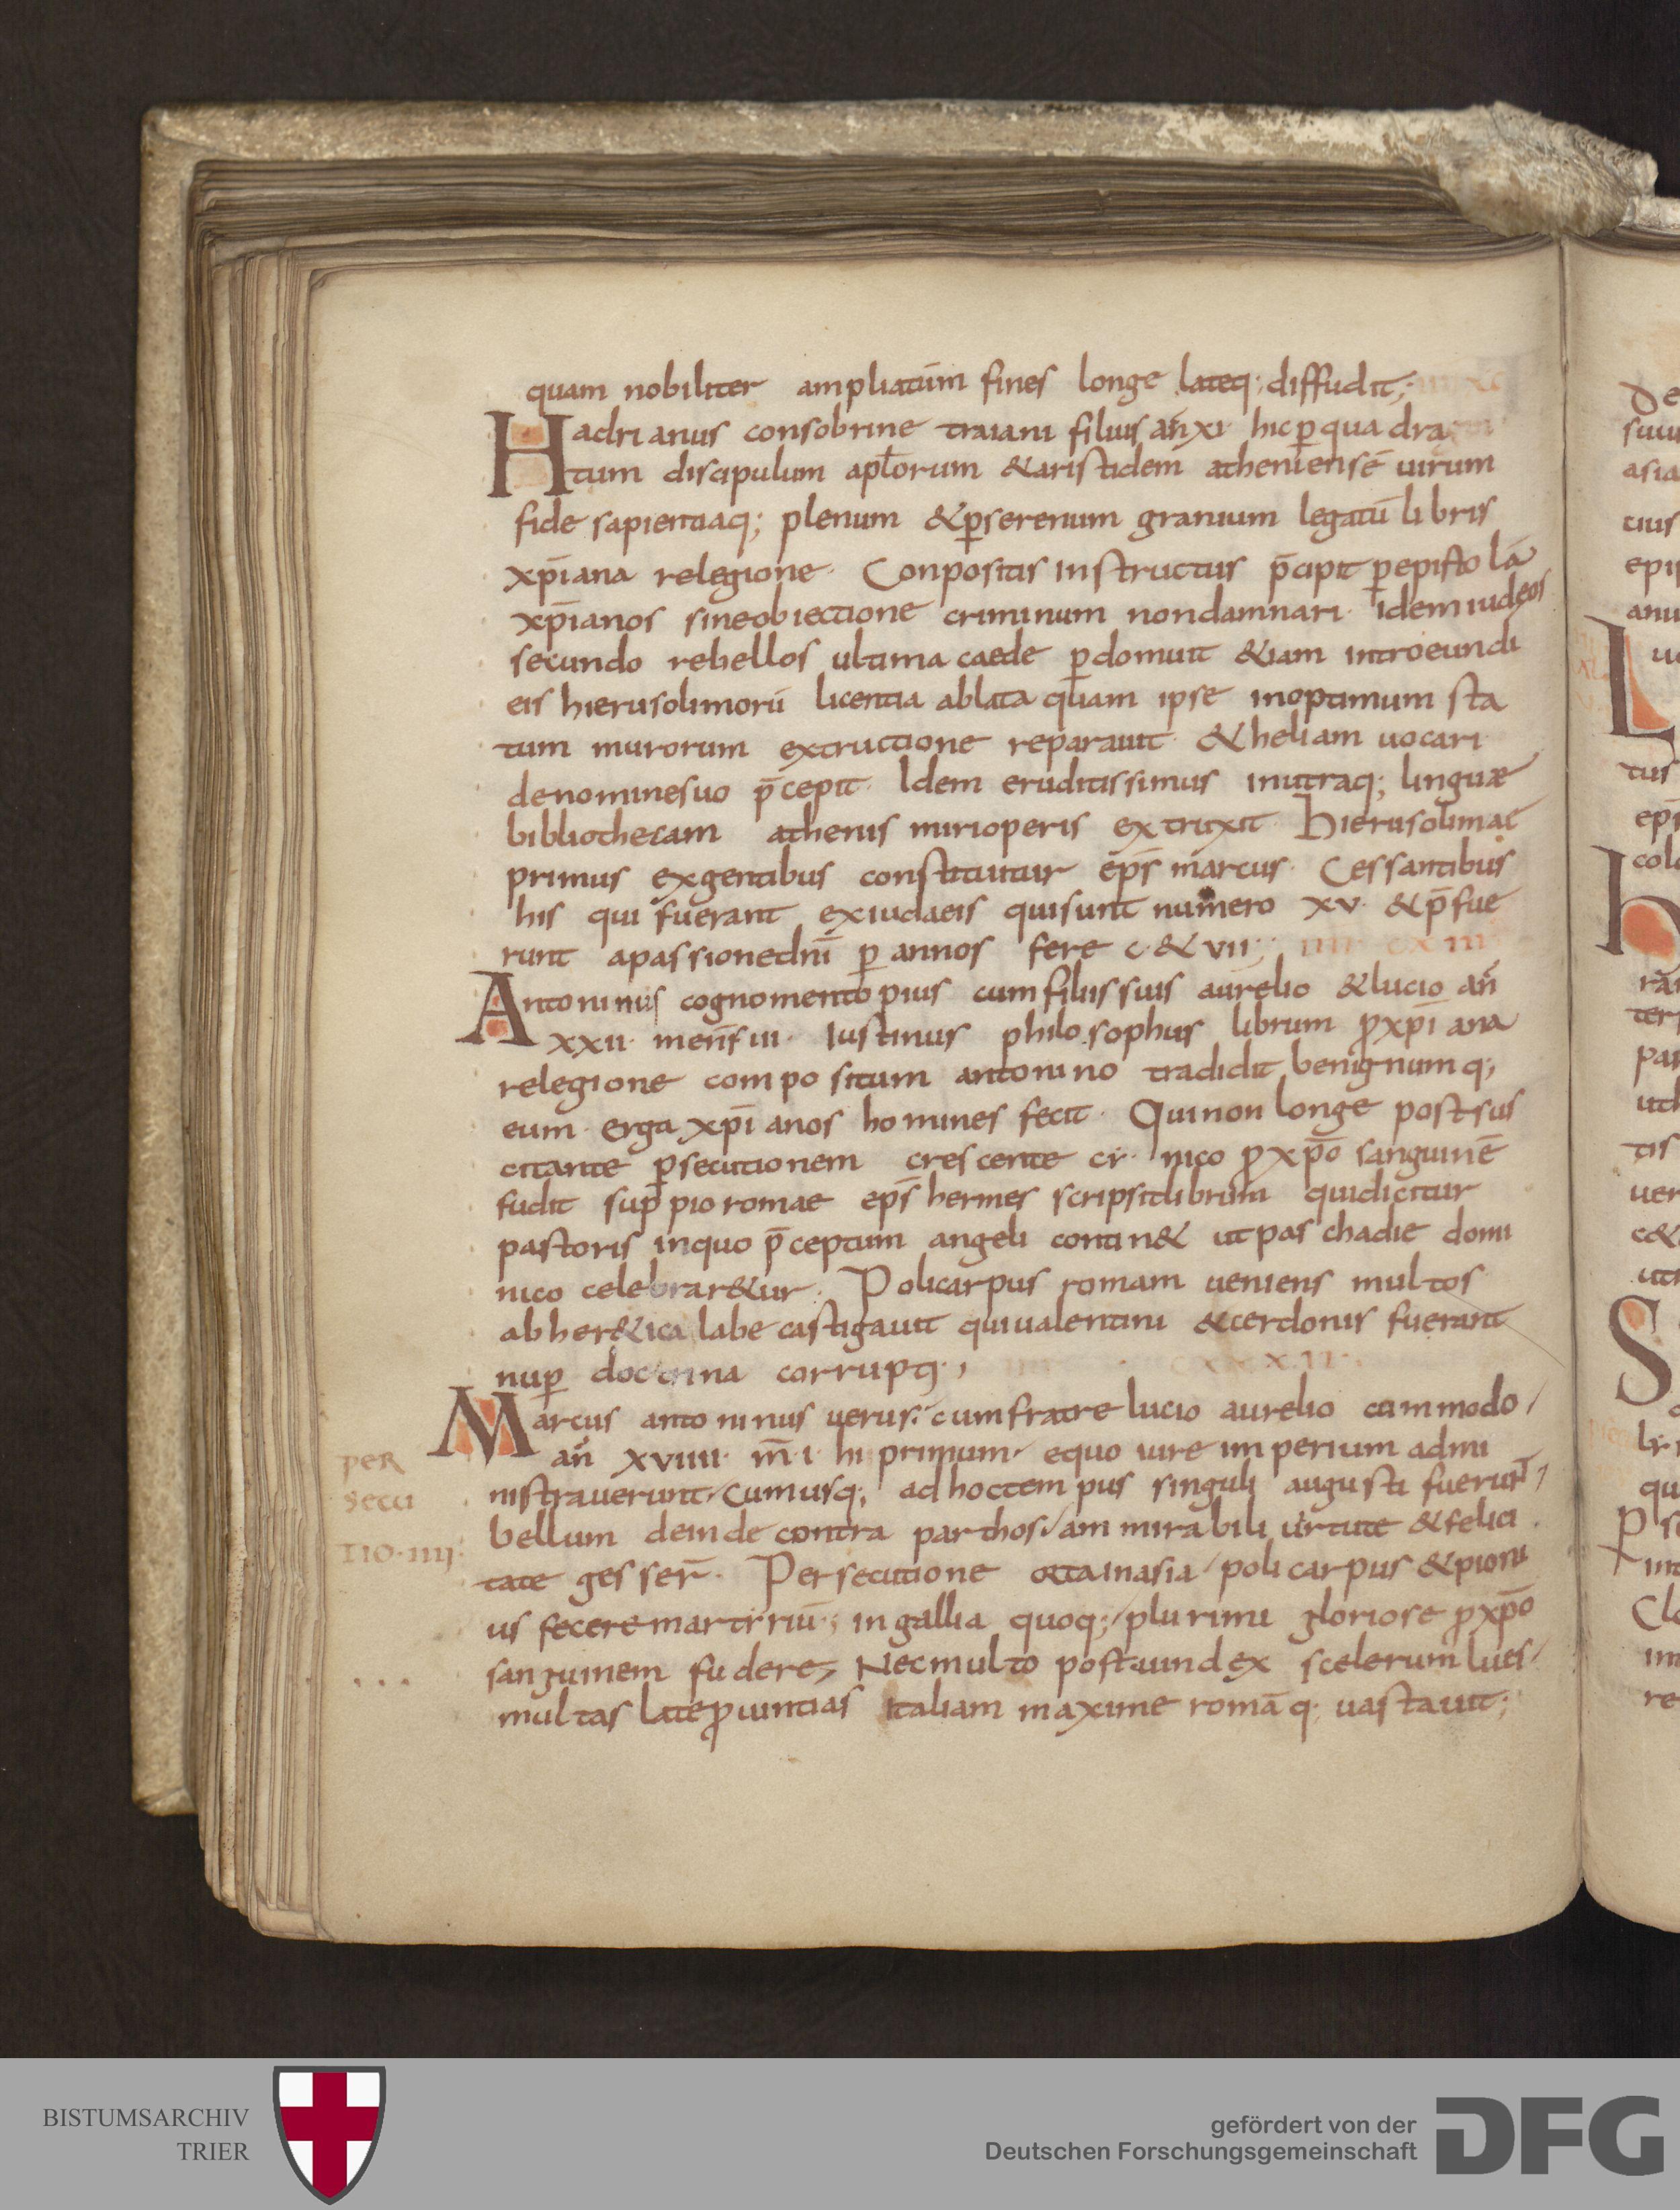 quam nobiliter ampliatum fines longe lateq; diffudit;
Hadrianus consobrine traiani filius an̄ xi hic p̱ quadra
tum discipulum apl̄orum & aristidem atheniensē uirum
fide sapientiaq; plenum & p̱ serenum granium legatū libris
xp̄iana relegione. Conpositis instructus p̄cipit p̱ epistolā
xp̄ianos sine obiectione criminum non damnari. Idem iudęos
secundo rebellos ultima caede p̱domuit & iam introeundi
eis hierusolimorū licentia ablata quam ipse in optimum sta
tum murorum extructione reparauit & heliam uocari
de nomine suo p̄cepit. Idem eruditissimus in utraq; linguæ
bibliothecam athenis miri operis extruxit. Hierusolimae
primus ex gentibus constituitur ep̄s marcus. Cessantibus
his qui fuerant ex iudaeis qui sunt numero xv. & p̄fue
runt a passione dn̄i p̱ annos fere c. & vii;
Antoninus cognomento pius cum filiis suis aurelio & lucio an̄
xxii. mens̄ iii. Iustinus philosophus librum ꝓ xp̄iana
relegione compositum antonino tradidit benignumq;
eum erga xp̄ianos homines fecit. Qui non longe post sus
citante p̱secutionem crescente ci nico ꝓ xp̄o sanguinē
fudit sup̱ pio romae ep̄s hermes scripsit librum qui dicitur
pastoris in quo p̄ceptum angeli contin& ut pascha die domi
nico celebrar&ur. Policarpus romam ueniens multos
ab her&ica labe castigauit qui ualentini & cerdonis fuerant
nup̱ doctrina corrupti.
Marcus antoninus uerus. cum fratre lucio aurelio commodo
an̄ xviiii. m̄. i. hi primum equo iure imperium admi
per
secu
tio. iiii.
nistrauerunt. Cum usq; ad hoc tempus singuli augusti fuerunt
bellum deinde contra parthos ammirabili uirtute & felici
tate gesser̄. Persecutione orta in asia policarpus & pioni
us fecere martiriū; in gallia quoq; plurimi gloriose ꝓ xp̄o
sanguinem fudere; Nec multo post uindex scelerum lues
multas late ꝓuintias Italiam maxime romāq; uastauit;
BISTUMSARCHIV
TRIER
gefördert von der
Deutschen Forschungsgemeinschaft
DFG